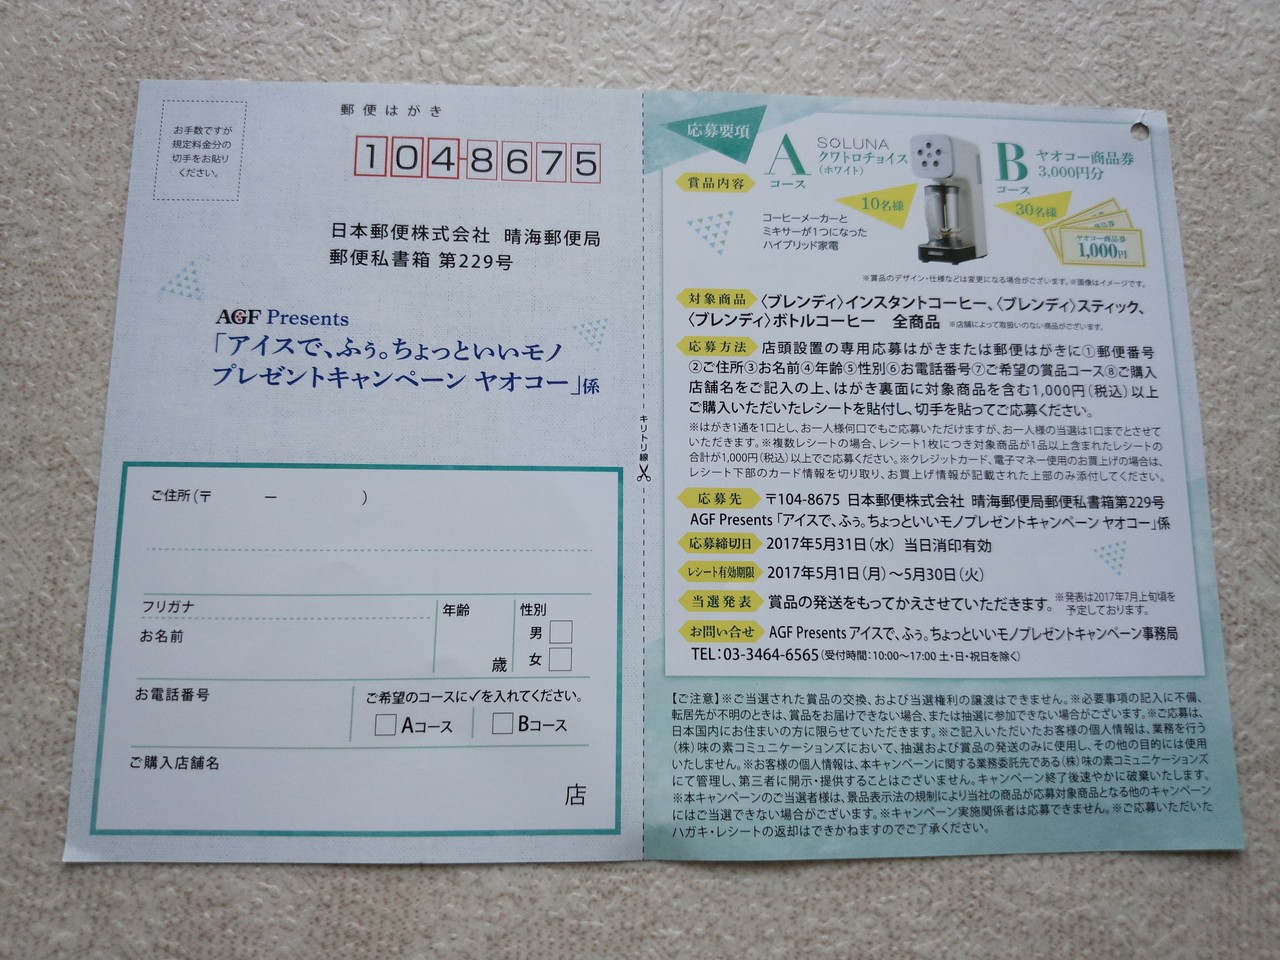 お手数ですが
規定料金分の
切手をお貼り
ください。
郵便はがき
104-8675
日本郵便株式会社 晴海郵便局
郵便私書箱 第229号
AGF Presents
「アイスで、ふぅ。ちょっといいモノ
プレゼントキャンペーン ヤオコー」係
ご住所(〒 ー )
フリガナ
お名前
年齢
歳
性別
男
女
お電話番号
ご希望のコースに✓を入れてください。
Aコース
Bコース
ご購入店舗名
店
キリトリ線
応募要項
賞品内容
A
コース
SOLUNA
クワトロチョイス
(ホワイト)
10名様
コーヒーメーカーと
ミキサーが1つになった
ハイブリッド家電
B
コース
ヤオコー商品券
3,000円分
30名様
ヤオコー商品券
1,000円
※賞品のデザイン・仕様などは変更になる場合がございます。※画像はイメージです。
対象商品 〈ブレンディ〉インスタントコーヒー、〈ブレンディ〉スティック、
〈ブレンディ〉ボトルコーヒー 全商品 ※店舗によって取扱いのない商品がございます。
応募方法 店頭設置の専用応募はがきまたは郵便はがきに①郵便番号
②ご住所③お名前④年齢⑤性別⑥お電話番号⑦ご希望の賞品コース⑧ご購入
店舗名をご記入の上、はがき裏面に対象商品を含む1,000円(税込)以上
ご購入いただいたレシートを貼付し、切手を貼ってご応募ください。
※はがき1通を1口とし、お一人様何口でもご応募いただけますが、お一人様の当選は1口までとさせて
いただきます。※複数レシートの場合、レシート1枚につき対象商品が1品以上含まれたレシートの
合計が1,000円(税込)以上でご応募ください。※クレジットカード、電子マネー使用のお買上げの場合は、
レシート下部のカード情報を切り取り、お買上げ情報が記載された上部のみ添付してください。
応募先 〒104-8675 日本郵便株式会社 晴海郵便局郵便私書箱第229号
AGF Presents「アイスで、ふぅ。ちょっといいモノプレゼントキャンペーン ヤオコー」係
応募締切日 2017年5月31日(水) 当日消印有効
レシート有効期限 2017年5月1日(月)～5月30日(火)
当選発表 賞品の発送をもってかえさせていただきます。 ※発表は2017年7月上旬頃を
予定しております。
お問い合せ AGF Presents アイスで、ふぅ。ちょっといいモノプレゼントキャンペーン事務局
TEL:03-3464-6565(受付時間:10:00～17:00 土・日・祝日を除く)
【ご注意】※ご当選された賞品の交換、および当選権利の譲渡はできません。※必要事項の記入に不備、
転居先が不明のときは、賞品をお届けできない場合、または抽選に参加できない場合がございます。※ご応募は、
日本国内にお住まいの方に限らせていただきます。※ご記入いただいたお客様の個人情報は、業務を行う
(株)味の素コミュニケーションズにおいて、抽選および賞品の発送のみに使用し、その他の目的には使用
いたしません。※お客様の個人情報は、本キャンペーンに関する業務委託先である(株)味の素コミュニケーションズ
にて管理し、第三者に開示・提供することはございません。キャンペーン終了後速やかに破棄いたします。
※本キャンペーンのご当選者様は、景品表示法の規制により当社の商品が応募対象商品となる他のキャンペーン
にはご当選できない場合がございます。※キャンペーン実施関係者は応募できません。※ご応募いただいた
ハガキ・レシートの返却はできかねますのでご了承ください。